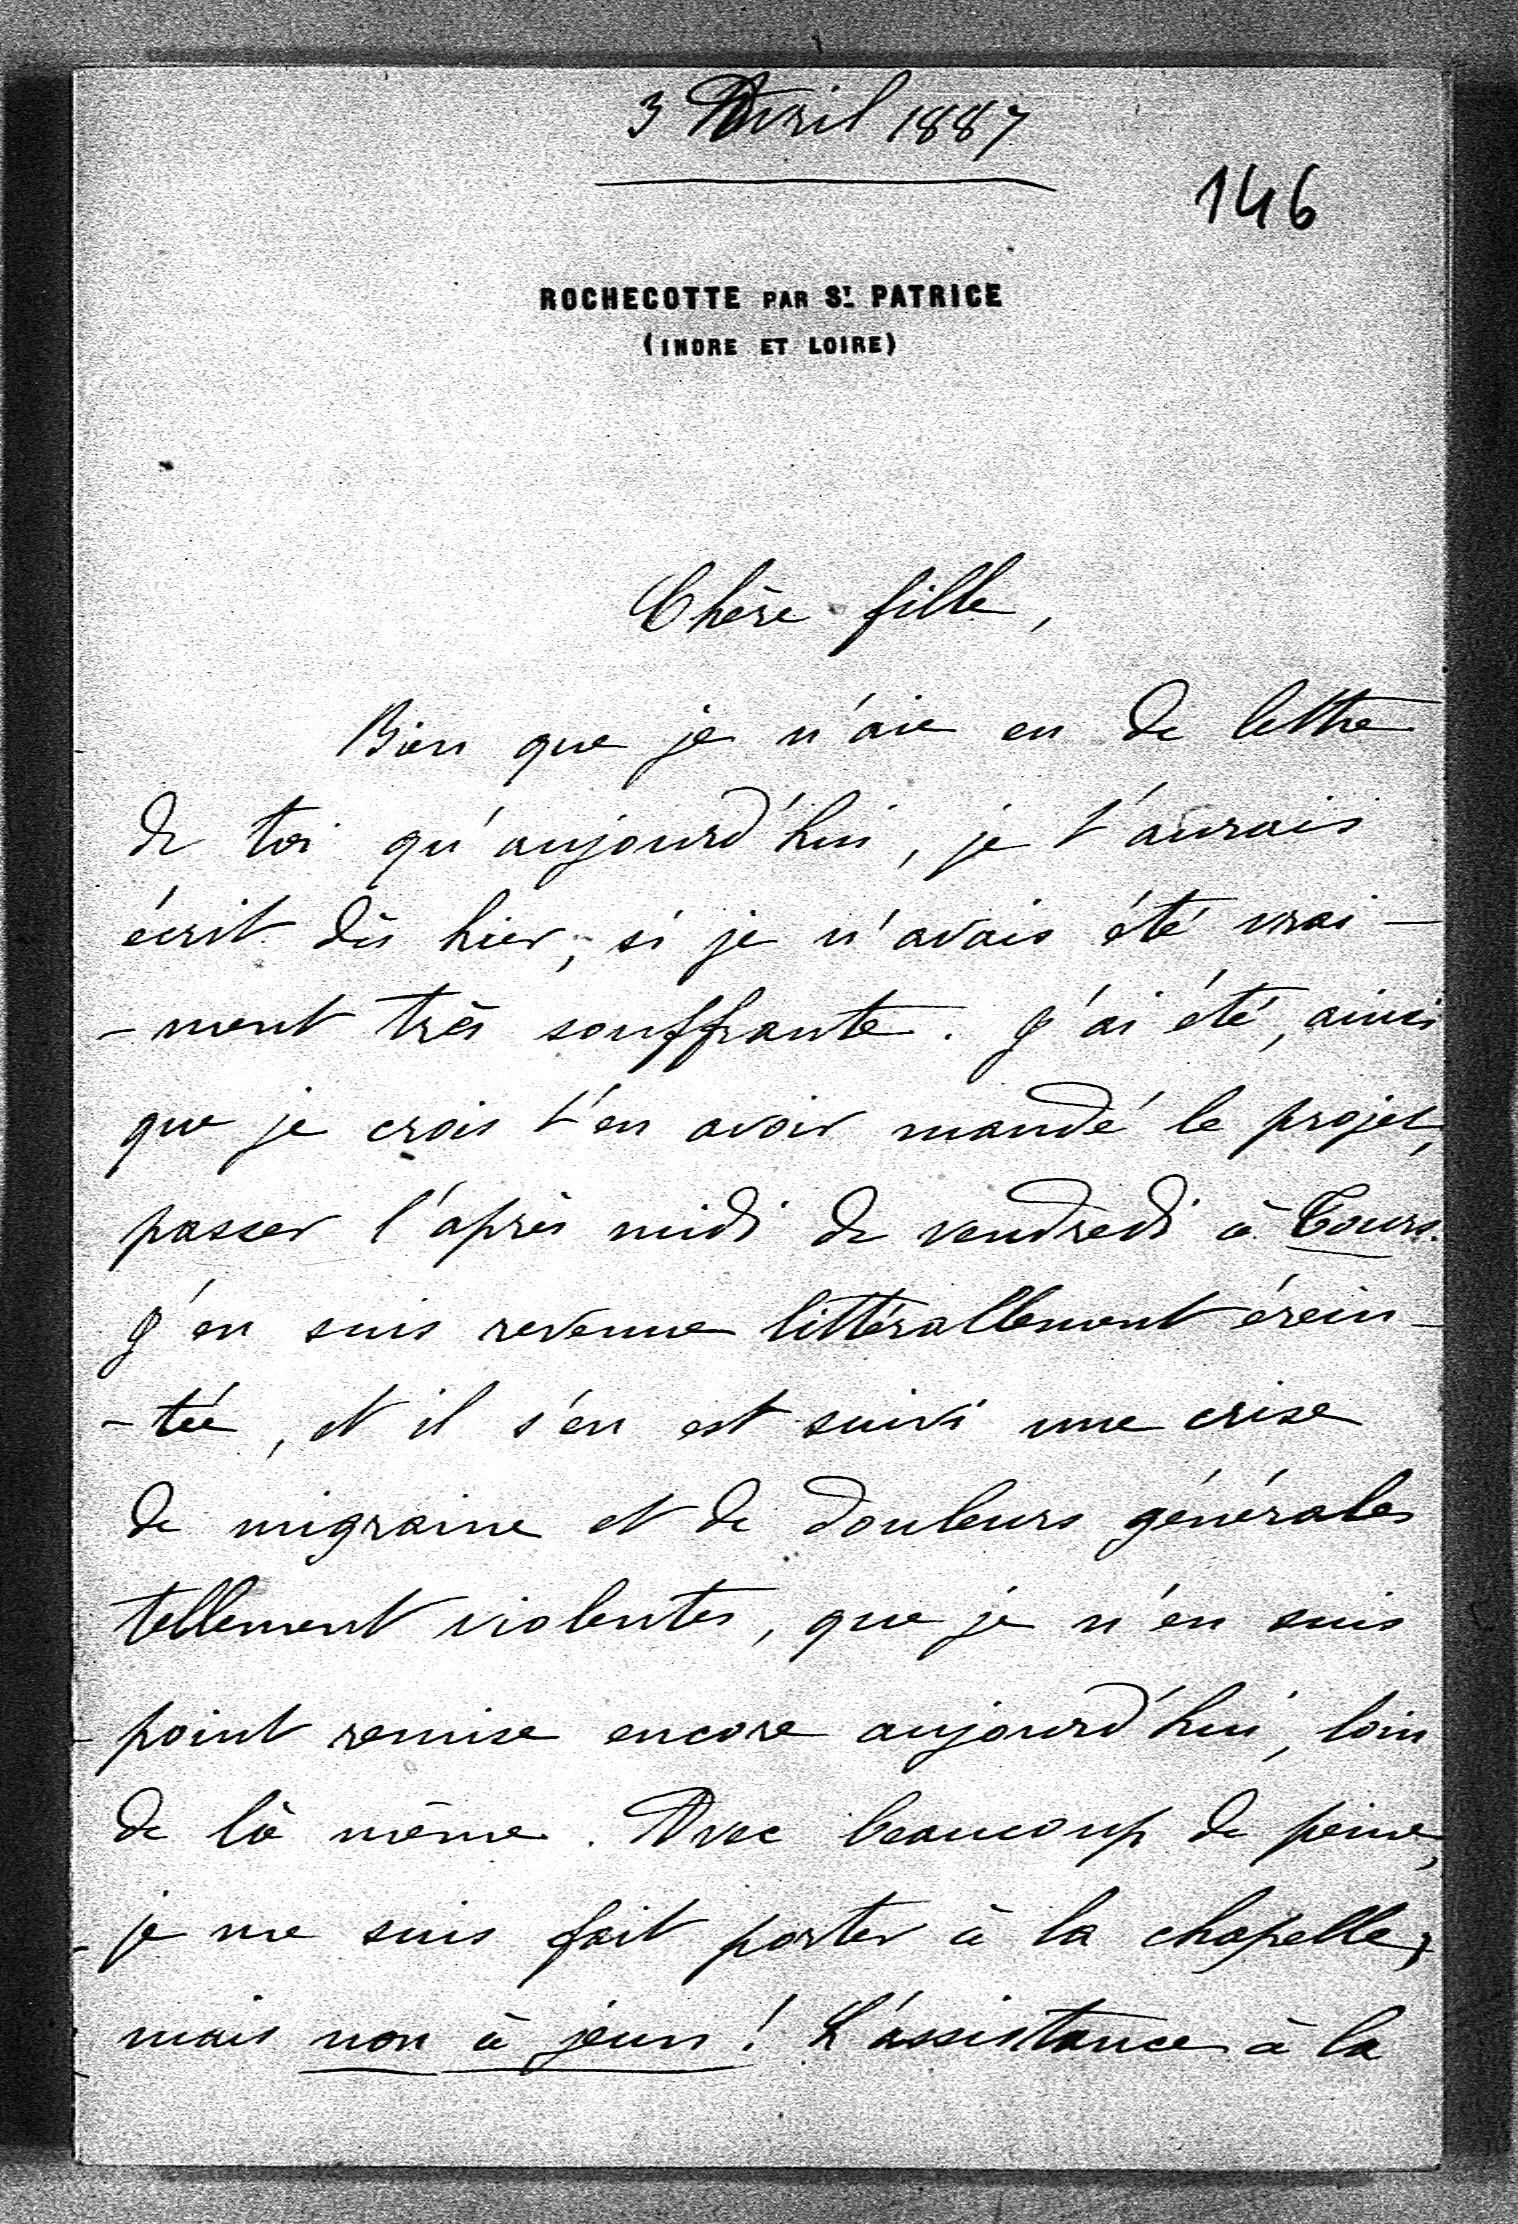 3 Avril 1887
146
ROCHECOTTE PAR ST PATRICE
(INDRE ET LOIRE)
Chère fille,
Bien que je n'aie eu de lettre
de toi qu'aujourd'hui, je t'aurais
écrit dès hier, si je n'avais été vrai-
-ment très souffrante. J'ai été, ainsi
que je crois t'en avoir mandé le projet,
passer l'après midi de vendredi à Tours.
J'en suis revenue littérallement érein-
-tée, et il s'en est suivi une crise
de migraine et de douleurs générales
tellement violentes, que je n'en suis
point remise encore aujourd'hui, loin
de là même. Avec beaucoup de peine,
je me suis fait porter à la chapelle,
mais non à jeun! L'assistance à la